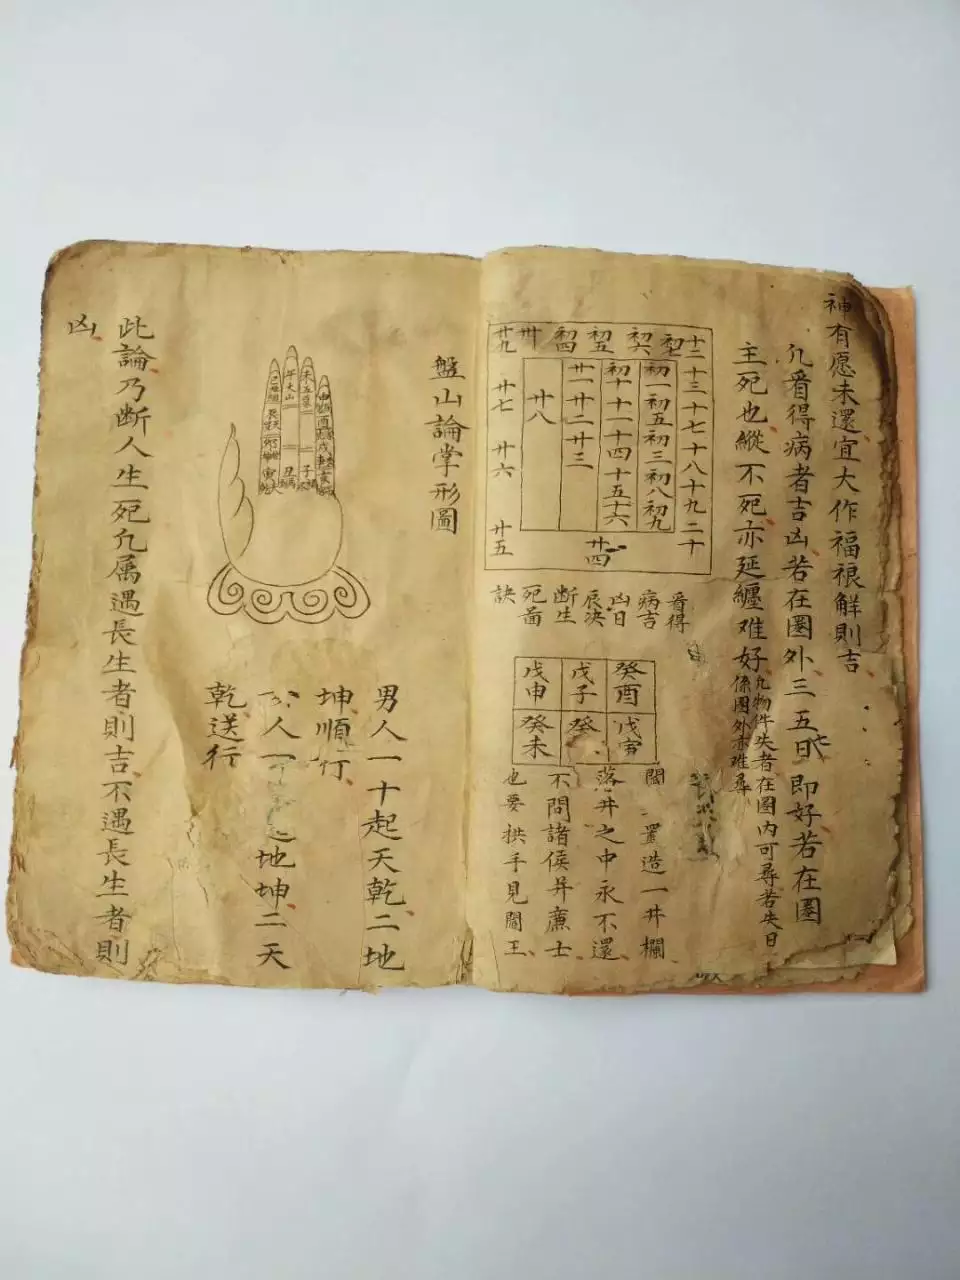 神有愿未還宜大作福禳解則吉
凡看得病者吉凶若在圏外三五日即好若在圏
主死也縱不死亦延纏难好
凡物件失者在圈内可尋若失日
係圈外亦难尋
十二 十三 十七 十八 十九 二十
初七
初六
初五
初四
卅
廿九
廿七
廿六
廿五
廿四
初一 初五 初三 初八 初九
初十 十一 十四 十五 十六
廿一 廿二 廿三
廿八
看得
病吉
凶日
辰决
断生
死啚
訣
癸酉
戊寅
戊子
癸
戊申
癸未
置造一井欄
落井之中永不還
不問諸侯并亷士
也要拱手見閻王
盤山論掌形圖
男人一十起天乾二地
坤順行
人一
地坤二天
乾送行
此論乃断人生死凡属遇長生者則吉不遇長生者則
凶